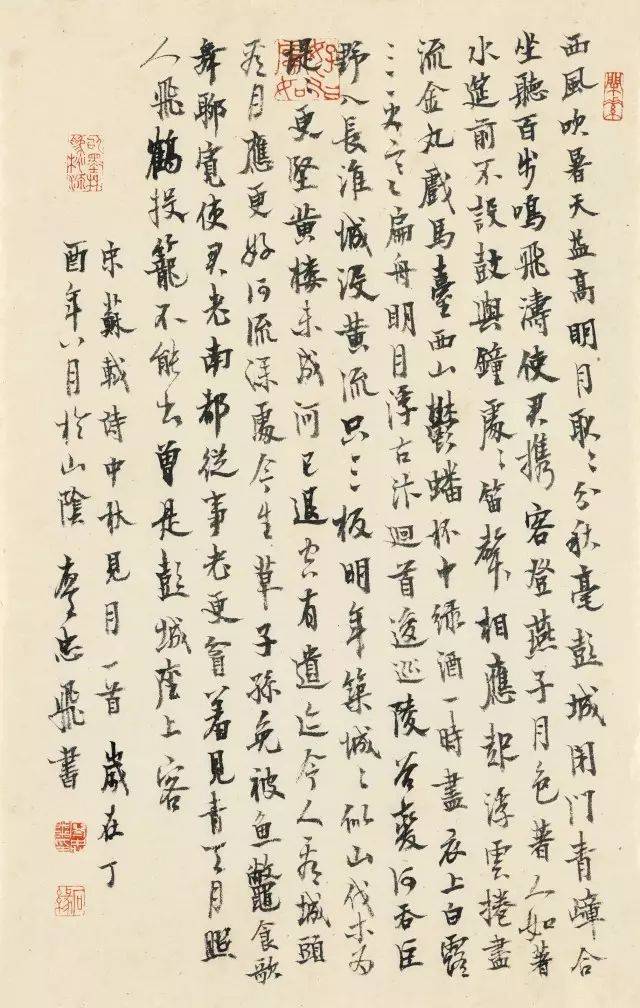 西風吹暑天益高明月耿〻分秋毫彭城閉門青嶂合
坐聽百步鳴飛濤使君携客登燕子月色著人如著
水筵前不設鼓與鐘處〻笛聲相應起浮雲捲盡
流金丸戲馬臺西山鬱蟠杯中緑酒一時盡衣上白露
扁舟明日浮古汴迴首逡巡陵谷變河吞巨
野入長淮城没黄流只三板明年築城〻似山伐木為
堤〻更堅黄樓未成河已退空有遺迹令人看城頭
看月應更好河流深處今生草子孫免被魚鼈食歌
舞聊寬使君老南都從事老更貧羞見青天月照
人飛鶴投籠不能出曾是彭城座上客
宋蘇轍詩中秋見月一首歲在丁
酉年八月於山陰忠飛書